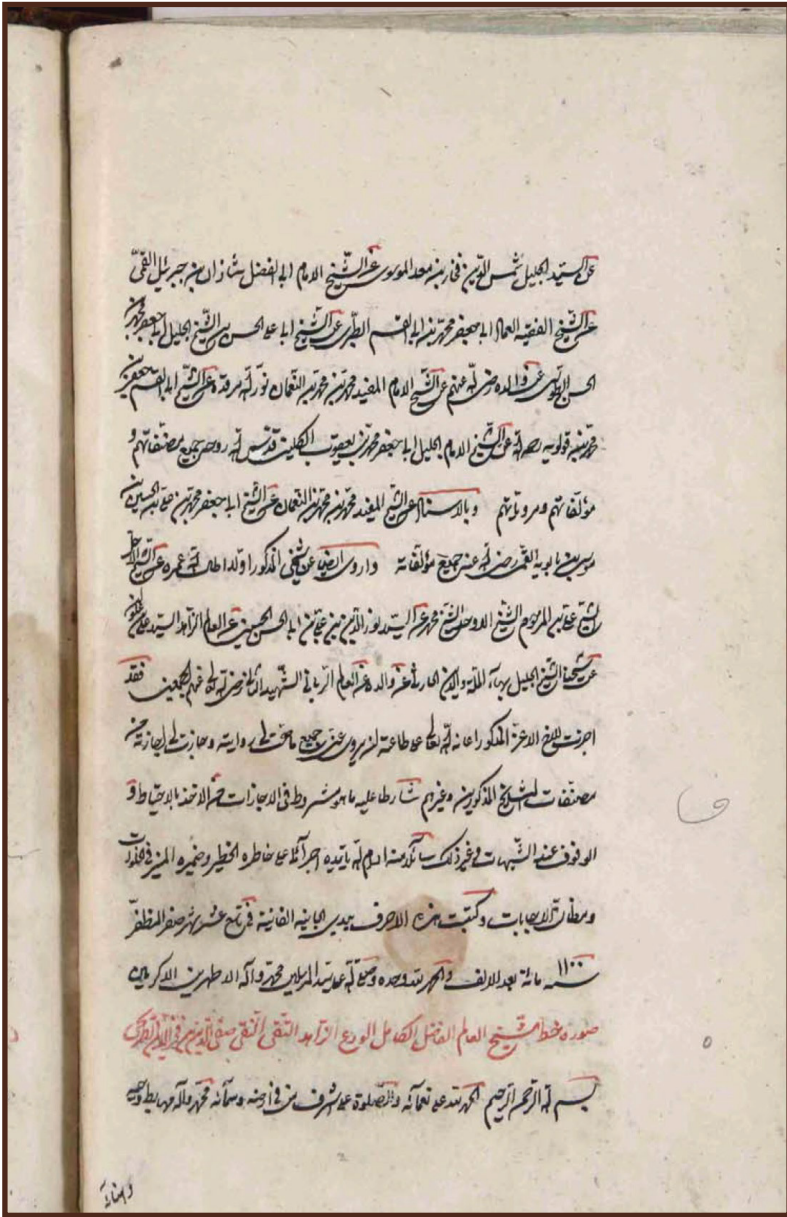 عن السيد الجليل شمس الدين فخار بن معد الموسوي عن الشيخ الامام ابي الفضل شاذان بن جبرئيل القمي
عن الشيخ الفقيه العماد ابي جعفر محمد بن ابي القسم الطبري عن الشيخ ابي علي الحسن بن الشيخ الجليل ابي جعفر محمد بن
الحسن الطوسي عن والده رضي الله عنهم عن الشيخ الامام المفيد محمد بن محمد بن النعمان نور الله مرقده عن الشيخ ابي القسم جعفر بن
محمد بن قولويه رحمه الله عن الشيخ الامام الجليل ابي جعفر محمد بن يعقوب الكليني قدس الله روحه جميع مصنفاتهم و
مؤلفاتهم ومروياتهم وبالاسناد عن الشيخ المفيد محمد بن محمد بن النعمان عن الشيخ ابي جعفر محمد بن علي بن الحسين بن
موسى بن بابويه القمي رضي الله عنه جميع مؤلفاته واروي ايضا عن شيخي المذكور اولا اطال الله عمره عن الشيخ الاجل
الشيخ علي بن المرحوم الشيخ الاوحد الشيخ محمد عن السيد نور الدين بن علي بن ابي الحسن الحسيني عن العالم الزاهد السيد علي
عن شيخنا الشيخ الجليل بهاء الملة والدين الحارثي عن والده عن العالم الرباني الشهيد الثاني رضي الله تعالى عنهم اجمعين فقد
اجزت للاخ الاعز المذكور اعانه الله تعالى على طاعته ان يروي عني جميع ما صحت لي روايته وجازت لي اجازته من
مصنفات المشايخ المذكورين وغيرهم شارطا عليه ما هو مشروط في الاجازات من الاخذ بالاحتياط و
الوقوف عند الشبهات وغير ذلك سائلا منه ادام الله تاييده اجرائي على خاطره الخطير وضميره المنير في الخلوات
ومظان الاجابات وكتبت هذه الاحرف بيدي الجانية الفانية في تاسع عشر شهر صفر المظفر
سنه ١١٠٠ مائة بعد الالف والحمد لله وحده وصلى الله على سيد المرسلين محمد وآله الاطهرين الاكرمين
صورة خط الشيخ العالم الفاضل الكامل الورع الزاهد التقي النقي صفي الدين بن فخر الدين الطريحي
بسم الله الرحمن الرحيم الحمد لله على نعمائه والصلوة على اشرف من في ارضه وسمائه محمد وآله مهابط وحيه